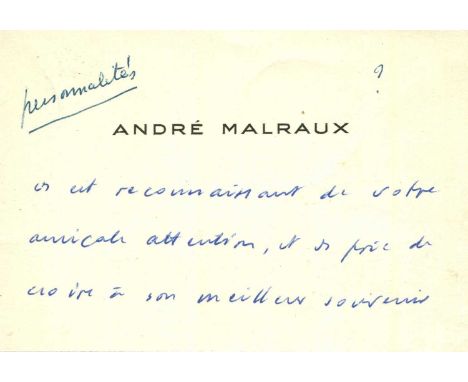 personnalités
?
ANDRÉ MALRAUX
est reconnaissant de votre
amicale attention, et prie de
croire à son meilleur souvenir